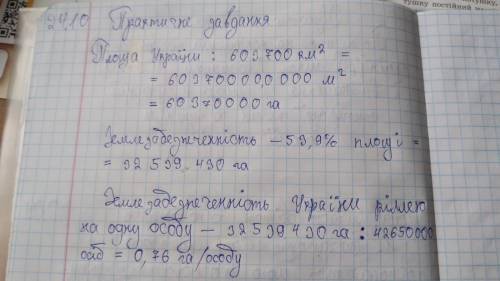 24.10 Практичне завдання
Площа України: 603.700 км² =
= 603700 000 000 м²
= 60370000 га
Землезабезпеченність – 53,9% площі =
= 32 539.430 га
Землезабезпеченність України ріллею
на одну особу – 32539430 га : 42650000
осіб = 0,76 га/особу